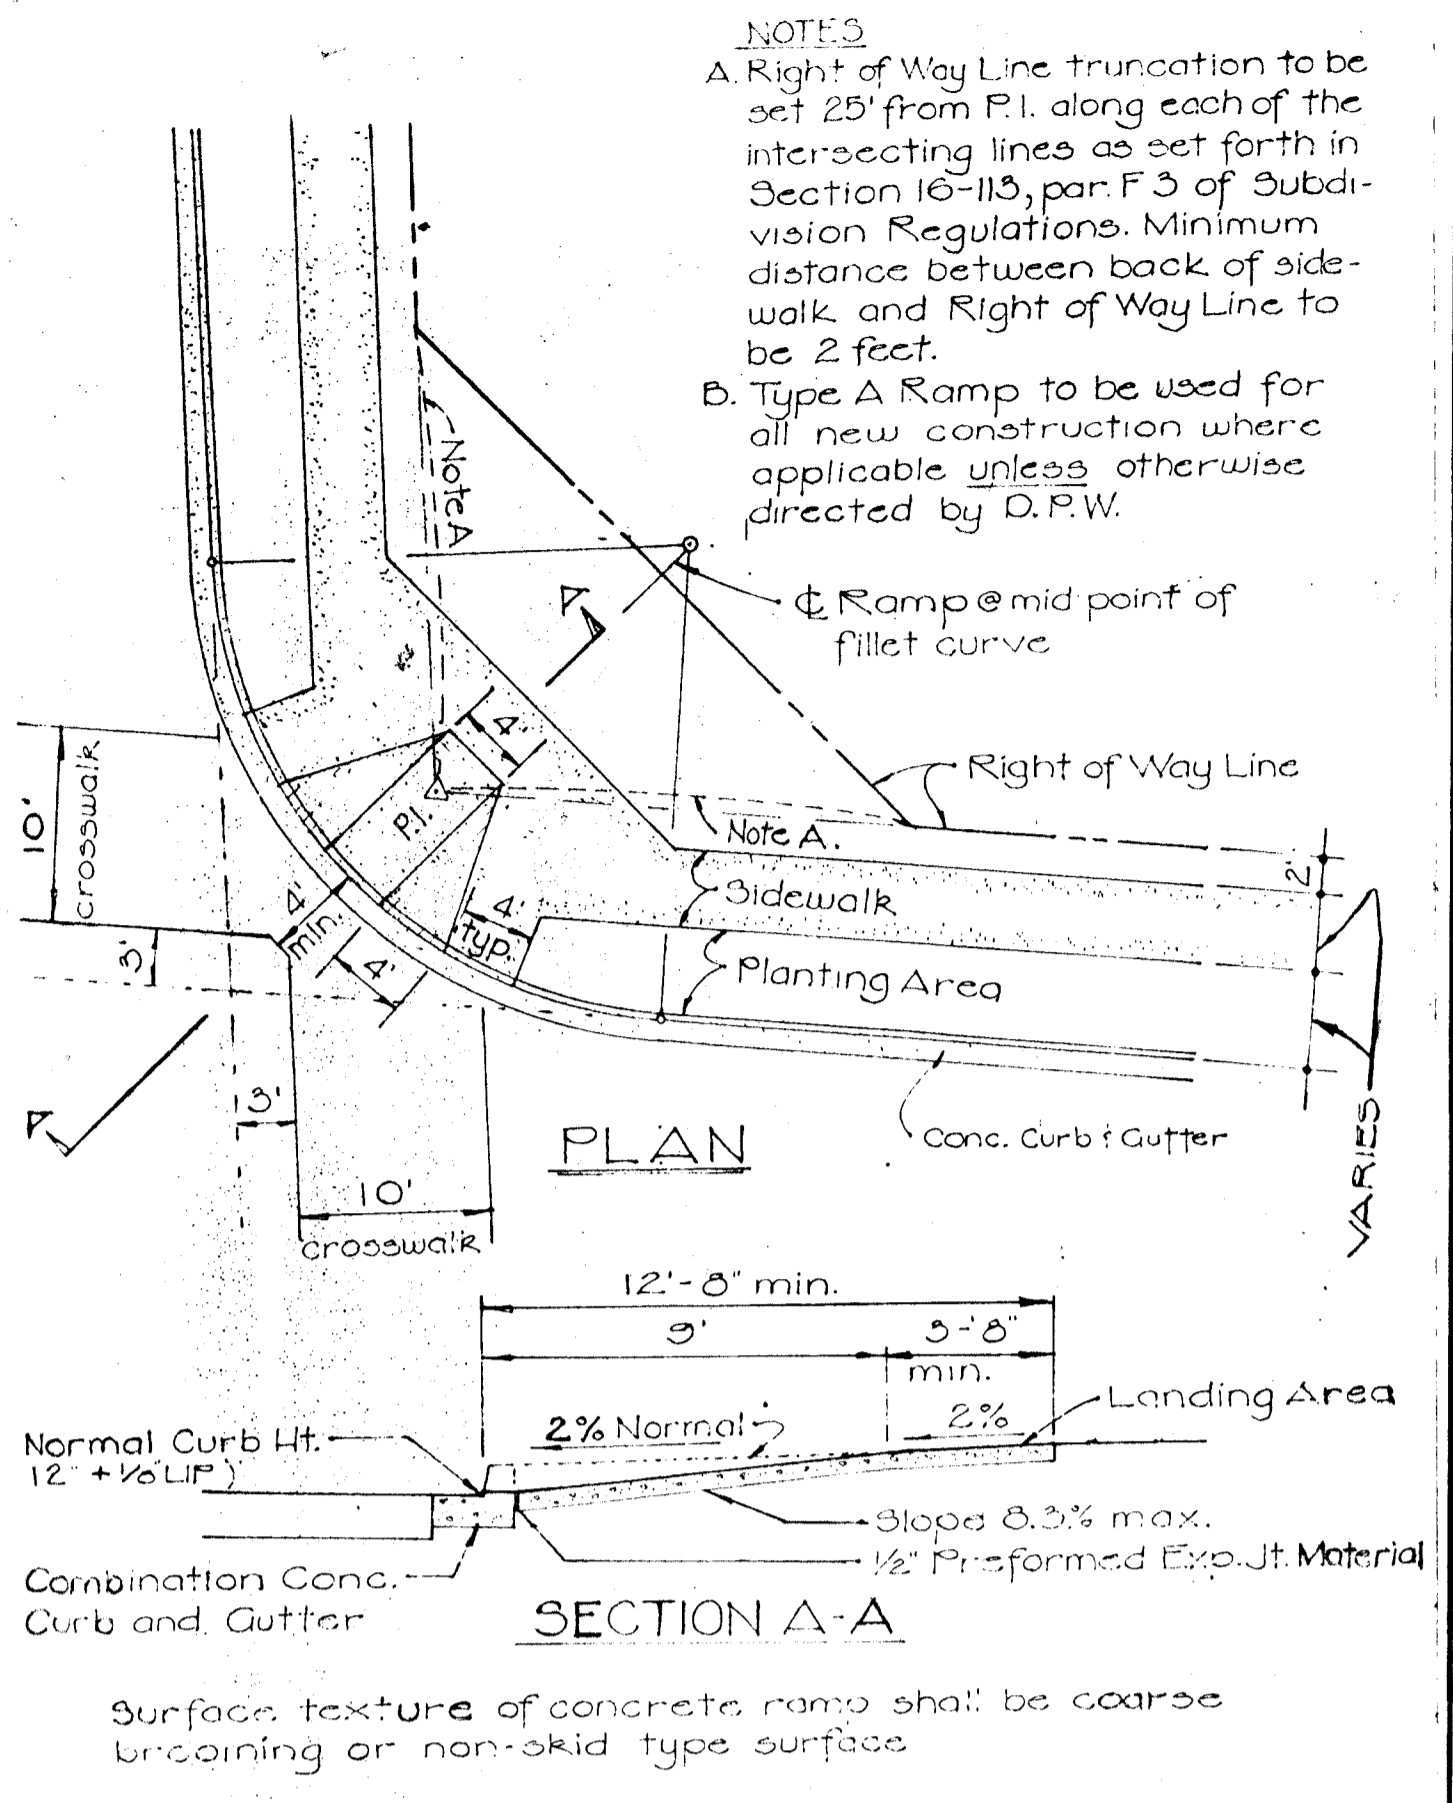 NOTES
A. Right of Way Line truncation to be
set 25' from P.I. along each of the
intersecting lines as set forth in
Section 16-113, par. F 3 of Subdi-
vision Regulations. Minimum
distance between back of side-
walk and Right of Way Line to
be 2 feet.
B. Type A Ramp to be used for
all new construction where
applicable unless otherwise
directed by D.P.W.
Note A
A
℄ Ramp @ mid point of
fillet curve
4'
10'
crosswalk
Right of Way Line
P.I.
Note A.
2'
Sidewalk
4'
min.
4'
typ.
3'
4'
Planting Area
3'
A
PLAN
Conc. Curb & Gutter
VARIES
10'
crosswalk
12'-8" min.
9'
3-'8"
min.
Landing Area
2% Normal
2%
Normal Curb Ht.
Slope 8.3% max.
1/2" Preformed Exp. Jt. Material
Combination Conc.
Curb and Gutter
SECTION A-A
Surface texture of concrete ramp shall be coarse
brooming or non-skid type surface